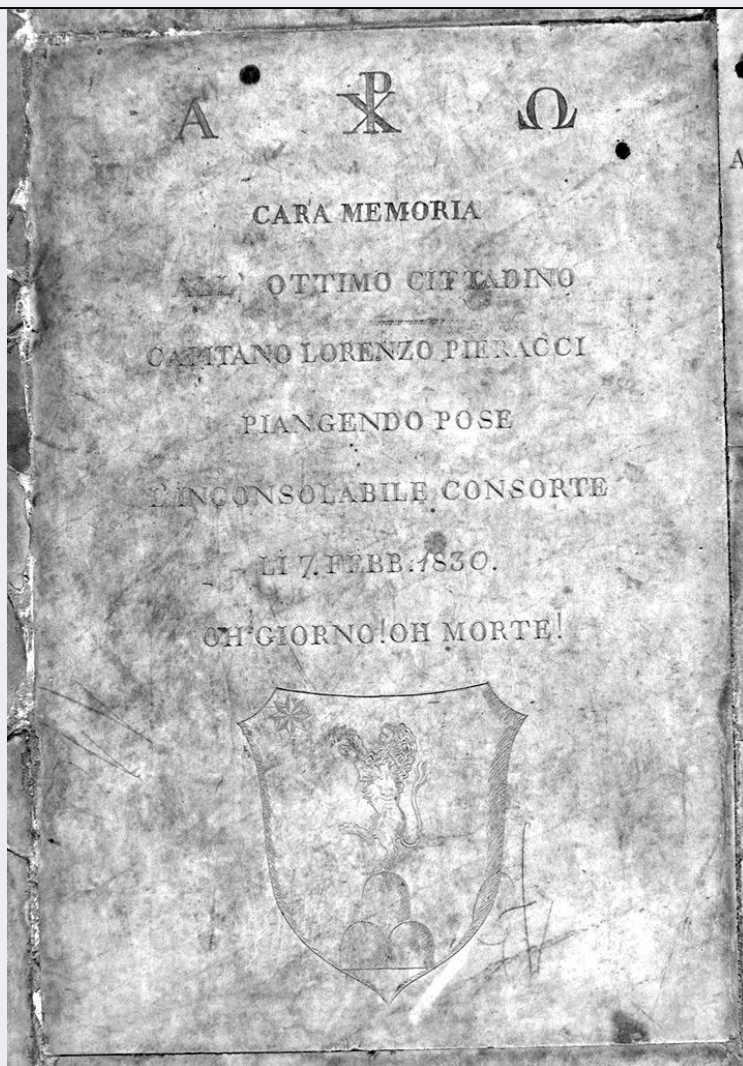 Α ☧ Ω
CARA MEMORIA
ALL' OTTIMO CITTADINO
CAPITANO LORENZO PIERACCI
PIANGENDO POSE
L'INCONSOLABILE CONSORTE
LI 7. FEBB: 1830.
OH GIORNO! OH MORTE!
A